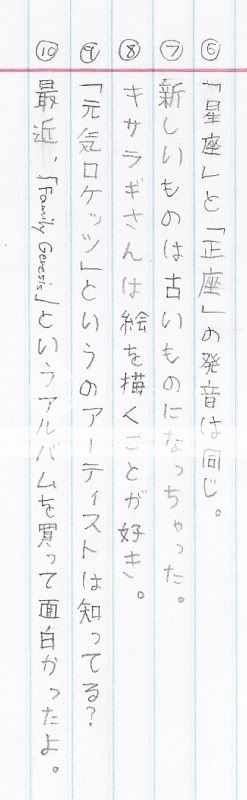 ⑥「星座」と「正座」の発音は同じ。
⑦新しいものは古いものになっちゃった。
⑧キサラギさんは絵を描くことが好き。
⑨「元気ロケッツ」というのアーティストは知ってる?
⑩最近、「Family Genesis」というアルバムを買って面白かったよ。